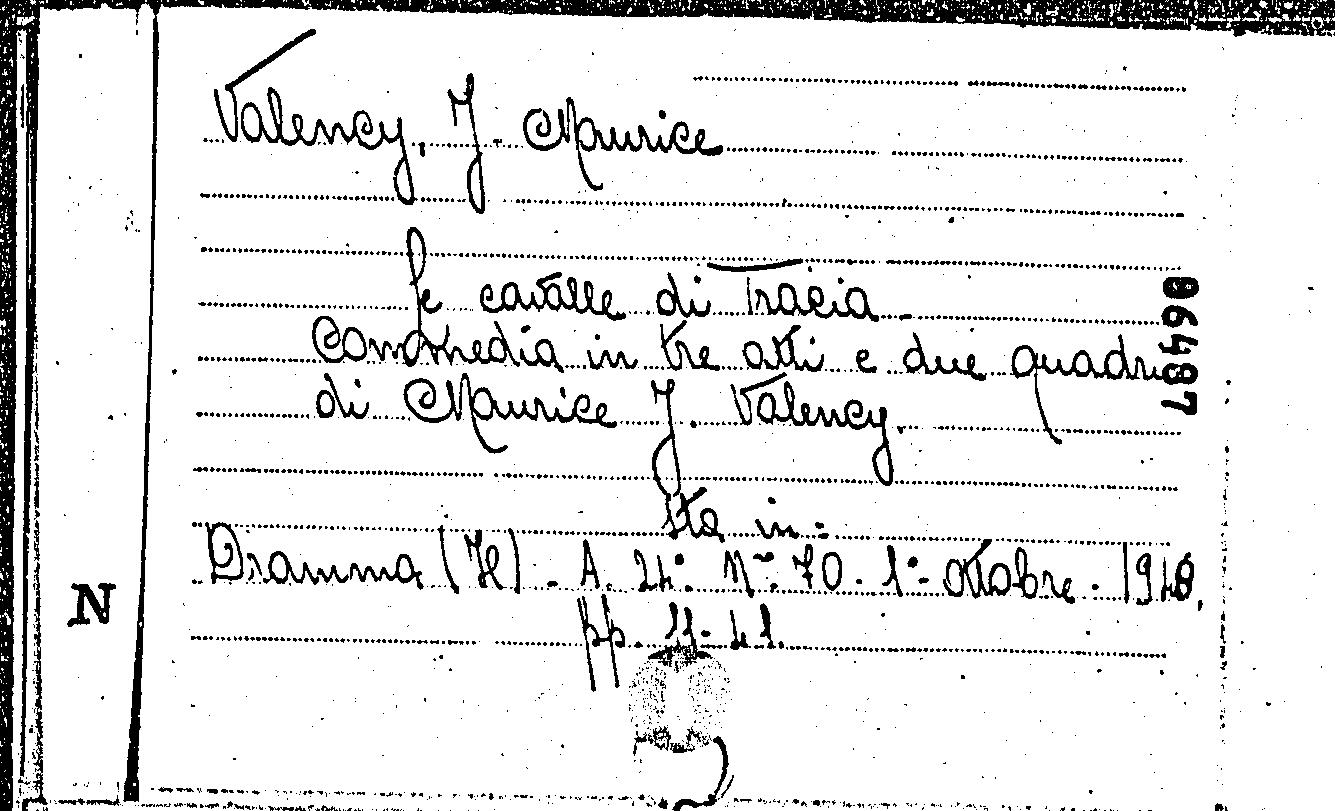 Valency, J. Maurice
Le cavalle di Tracia.
Commedia in tre atti e due quadri
di Maurice J. Valency.
Sta in:
Dramma (Il). A. 24° Nr. 70. 1° ottobre. 1948.
pp. 11-41.
06487
N